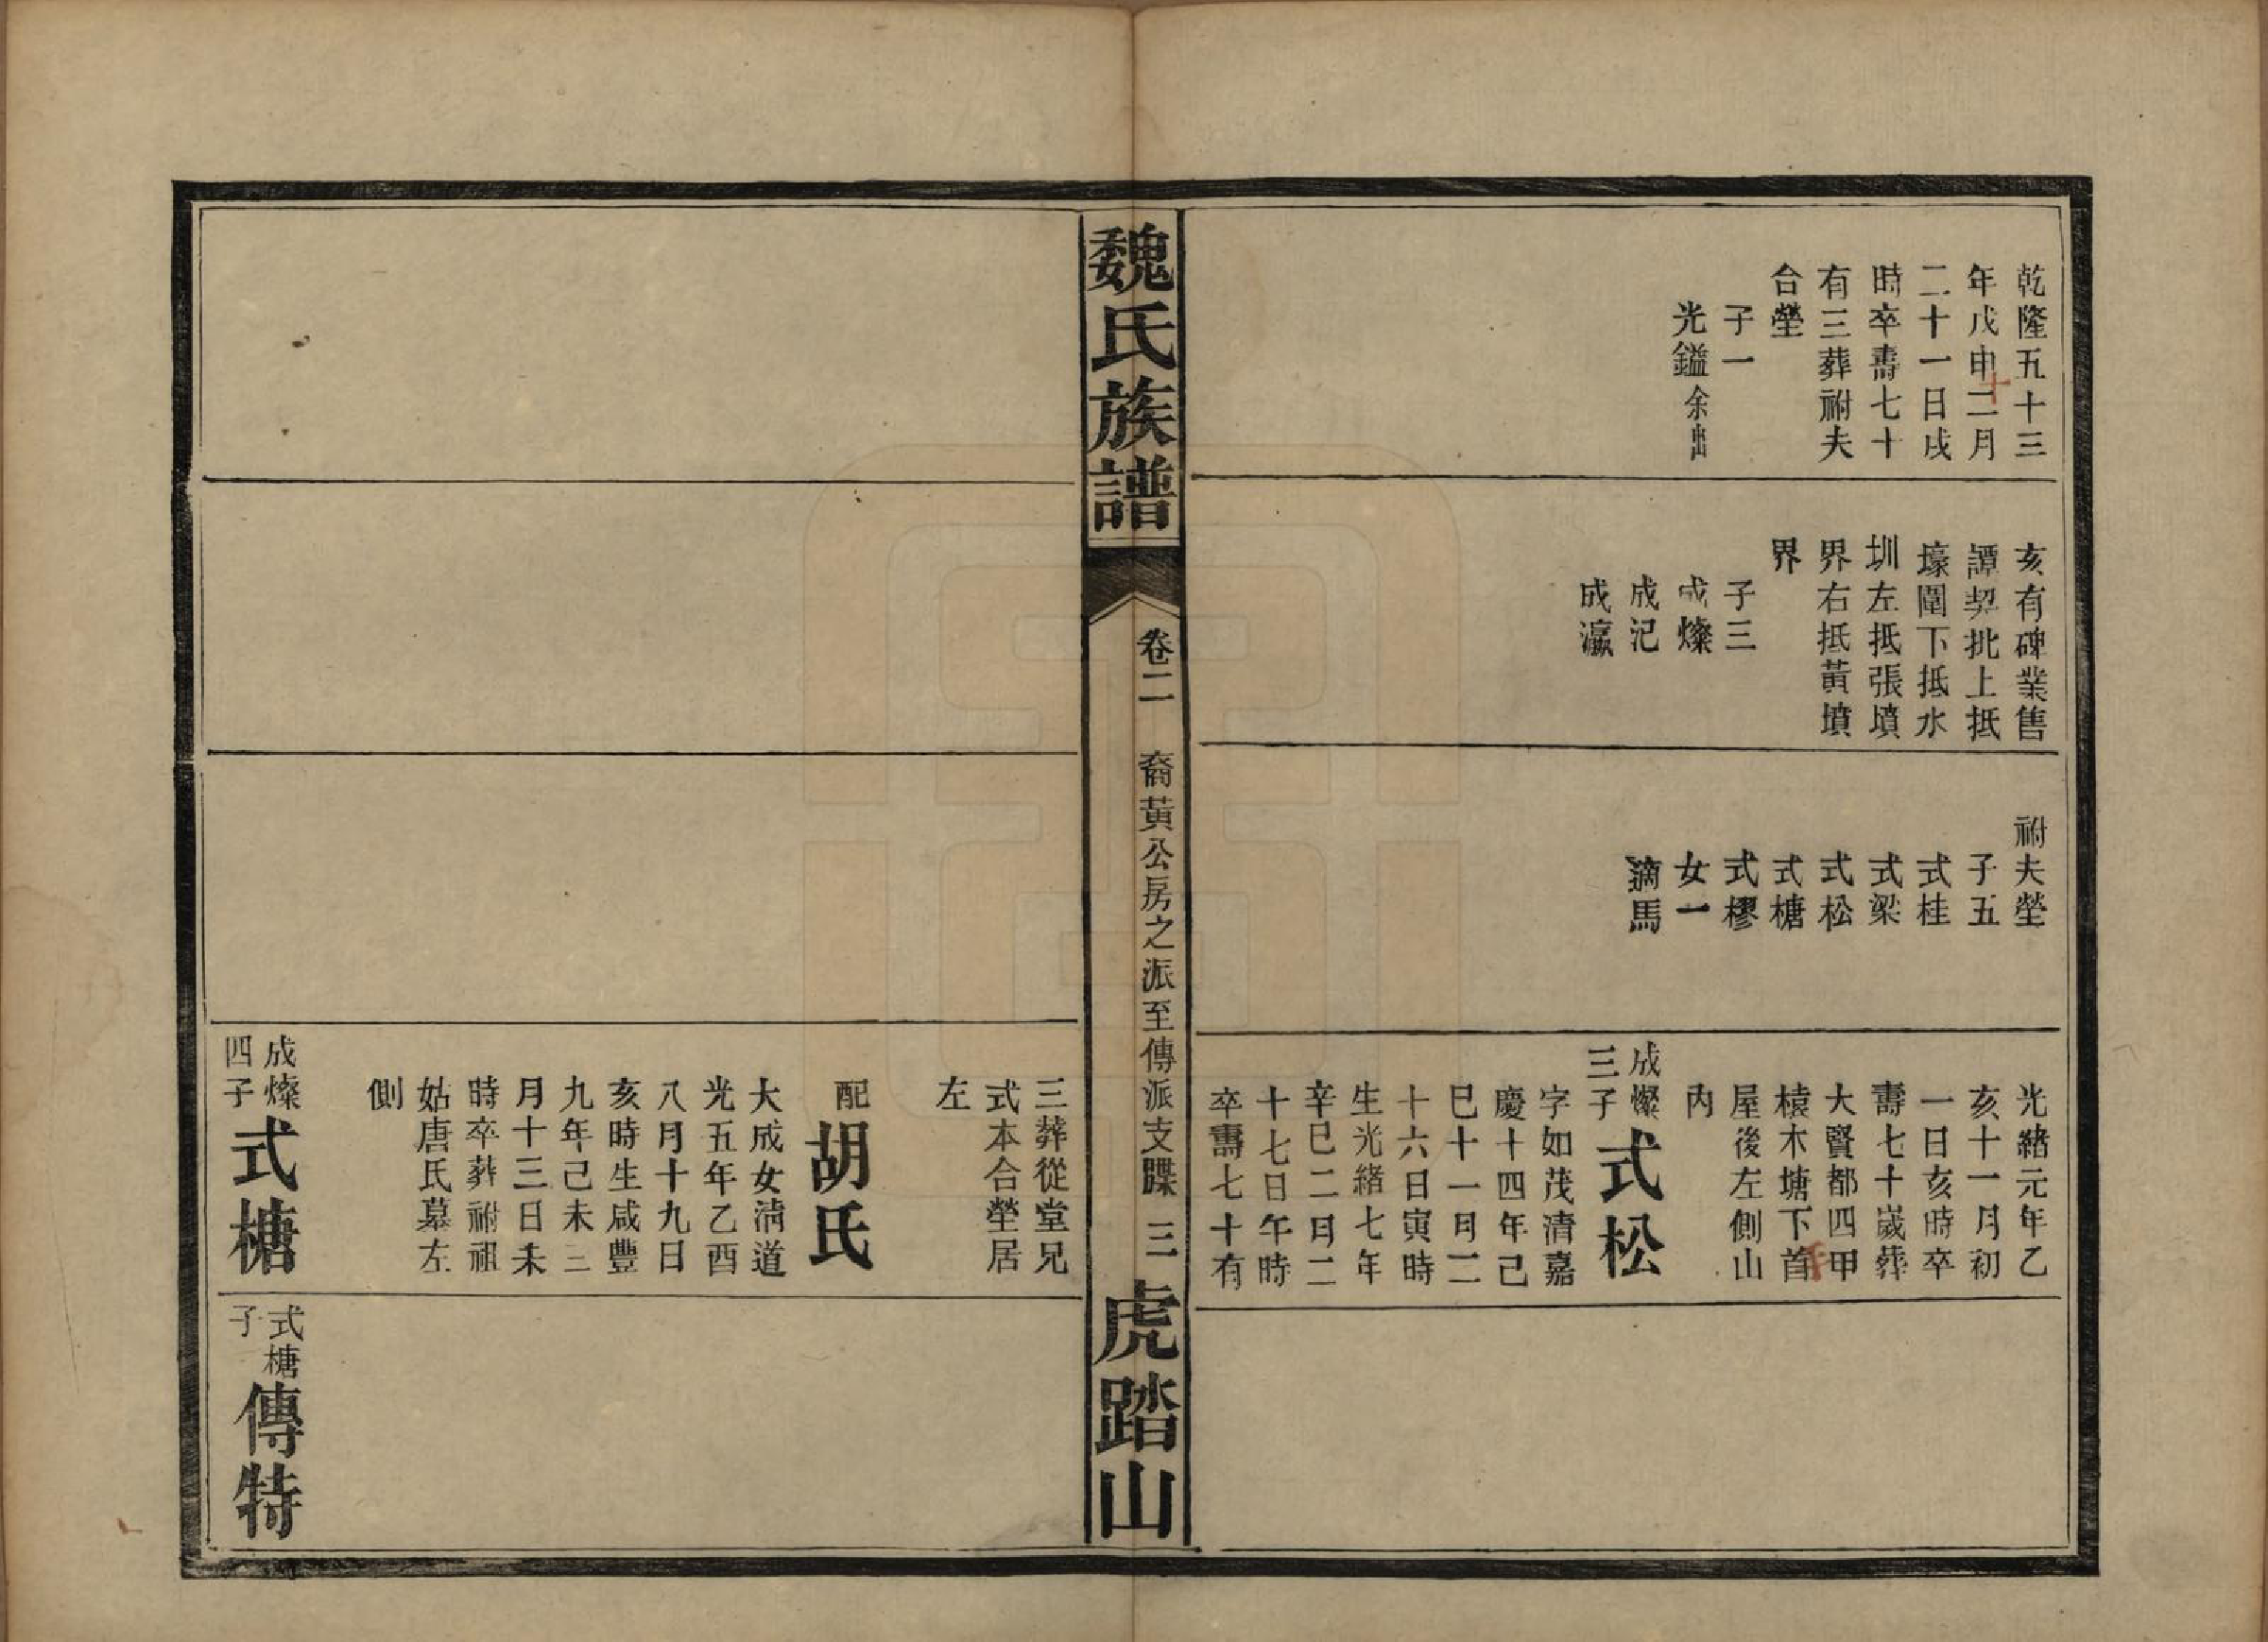 乾隆五十三
年戊申二月
十
二十一日戌
時卒壽七十
有三葬祔夫
合塋
子一
光鎰余出
亥有碑業售
譚契批上抵
壕圍下抵水
圳左抵張墳
界右抵黃墳
界
子三
成燦
成汜
成瀛
祔夫塋
子五
式桂
式梁
式松
式榶
式樛
女一
適馬
光緒元年乙
亥十一月初
一日亥時卒
壽七十歲葬
大賢都四甲
榬木塘下首
屋後左側山
內
成燦
三子
式松
字如茂清嘉
慶十四年己
巳十一月二
十六日寅時
生光緒七年
辛巳二月二
十七日午時
卒壽七十有
魏氏族譜
卷二
裔黃公房之派至傳派支牒
三
虎踏山
三葬從堂兄
式本合塋居
左
配
胡氏
大成女清道
光五年乙酉
八月十九日
亥時生咸豐
九年己未三
月十三日未
時卒葬祔祖
姑唐氏墓左
側
成燦
四子
式榶
式榶
子
傳特